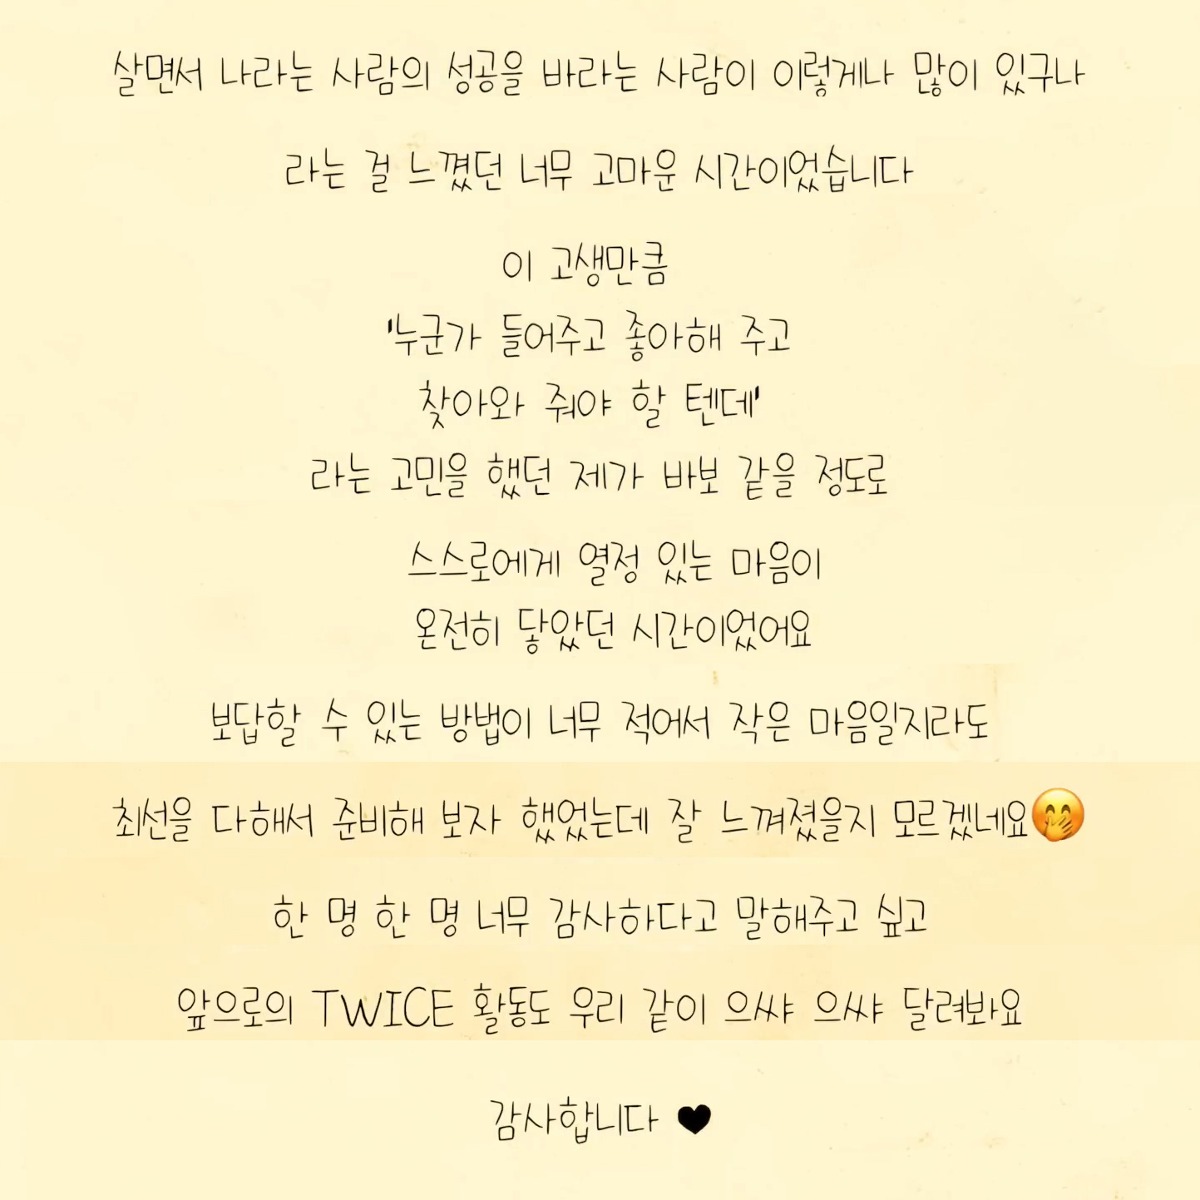 살면서 나라는 사람의 성공을 바라는 사람이 이렇게나 많이 있구나
라는 걸 느꼈던 너무 고마운 시간이었습니다
이 고생만큼
'누군가 들어주고 좋아해 주고
찾아와 줘야 할 텐데'
라는 고민을 했던 제가 바보 같을 정도로
스스로에게 열정 있는 마음이
온전히 닿았던 시간이었어요
보답할 수 있는 방법이 너무 적어서 작은 마음일지라도
최선을 다해서 준비해 보자 했었는데 잘 느껴졌을지 모르겠네요🤭
한 명 한 명 너무 감사하다고 말해주고 싶고
앞으로의 TWICE 활동도 우리 같이 으쌰 으쌰 달려봐요
감사합니다 ♥